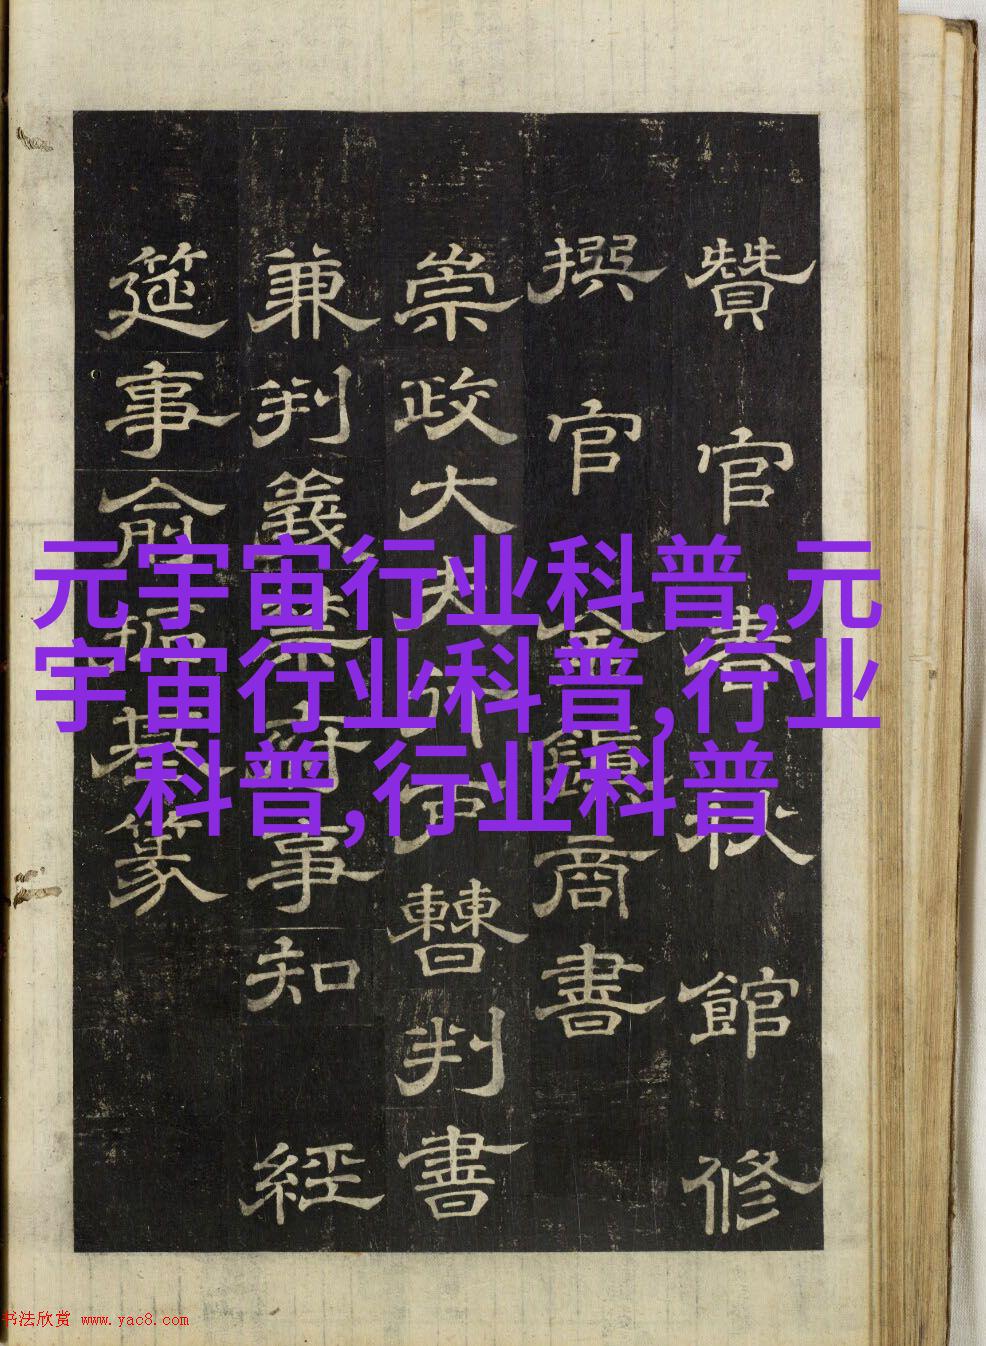 贊官春秋館修
撰官金鎭商書
崇政大夫行戶曹判書
兼判義禁府事知經
筵事俞拓基篆
元宇宙行业科普,元
宇宙行业科普,行业
科普,行业科普
书法欣赏 www.yac8.com